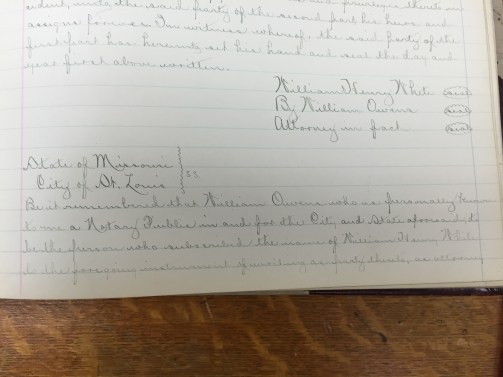 unto the said party of the second part his heirs and
assigns forever. In witness whereof, the said party of the
first part has hereunto set his hand and seal the day and
year first above written.
William Henry White (seal)
By William Owens (seal)
Attorney in fact (seal)
State of Missouri
City of St. Louis } ss
Be it remembered that William Owens who is personally known
to me a Notary Public in and for the City and State aforesaid to
be the person who subscribed the name of William Henry White
to the foregoing instrument of writing as party thereto, as attorney